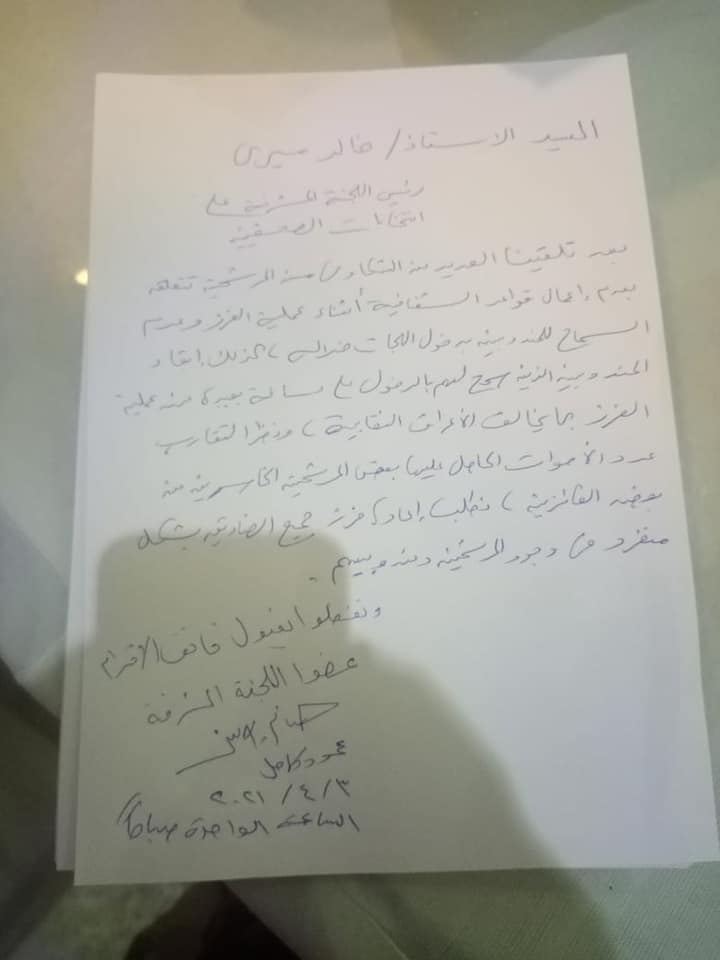 السيد الاستاذ/ خالد ميري
رئيس اللجنة المشرفة على
انتخابات الصحفيين
بعد تلقينا العديد من الشكاوى من المرشحين تتعلق
بعدم إعمال قواعد الشفافية أثناء عملية الفرز وعدم
السماح للمندوبين بدخول اللجان ، كذلك إبقاء
المندوبين الذين سمح لهم بالدخول على مسافة بعيدة من عملية
الفرز بما يخالف الأعراف النقابية ، ونظرا لتقارب
عدد الأصوات الحاصل عليها بعض المرشحين الخاسرين من
بعض الفائزين ، نطلب إعادة فرز جميع الصناديق بشكل
منفرد في وجود المرشحين ومندوبيهم .
وتفضلوا بقبول فائق الاحترام
عضوا اللجنة المشرفة
محمود كامل
٣/٤/٢٠٢١
الساعة الواحدة صباحاً